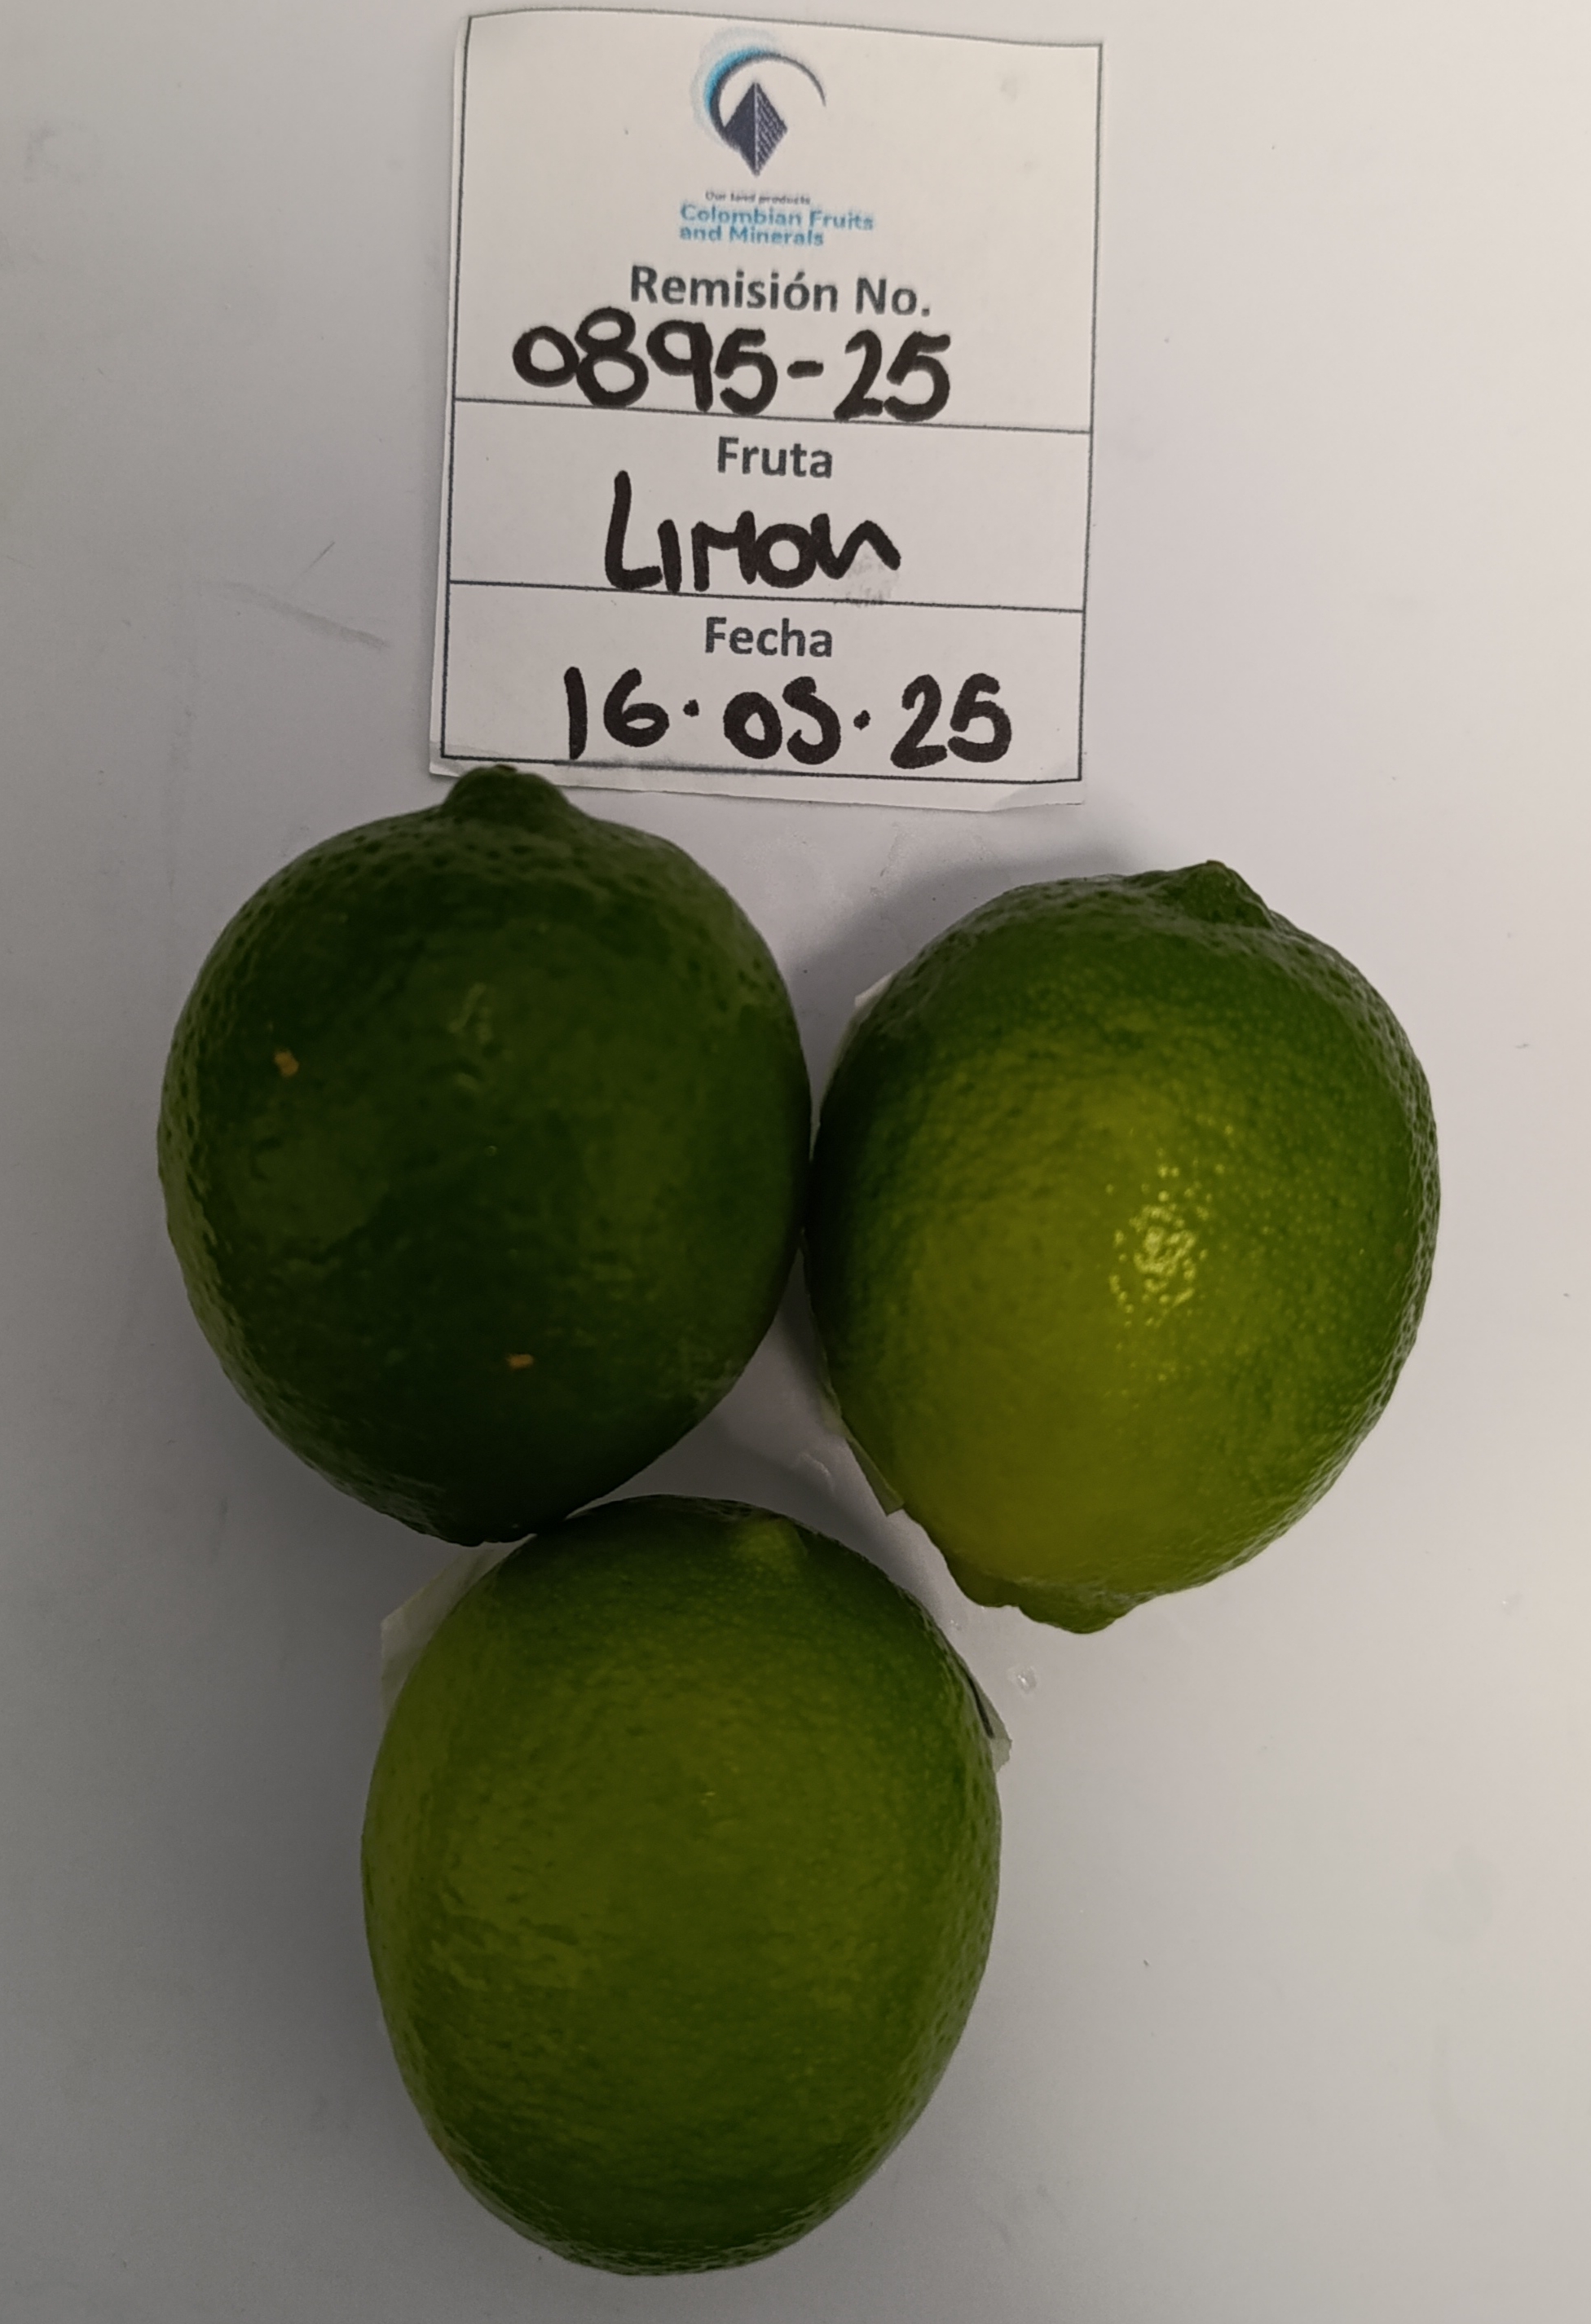 Our land products
Colombian Fruits
and Minerals
Remisión No.
0895-25
Fruta
LIMON
Fecha
16.05.25